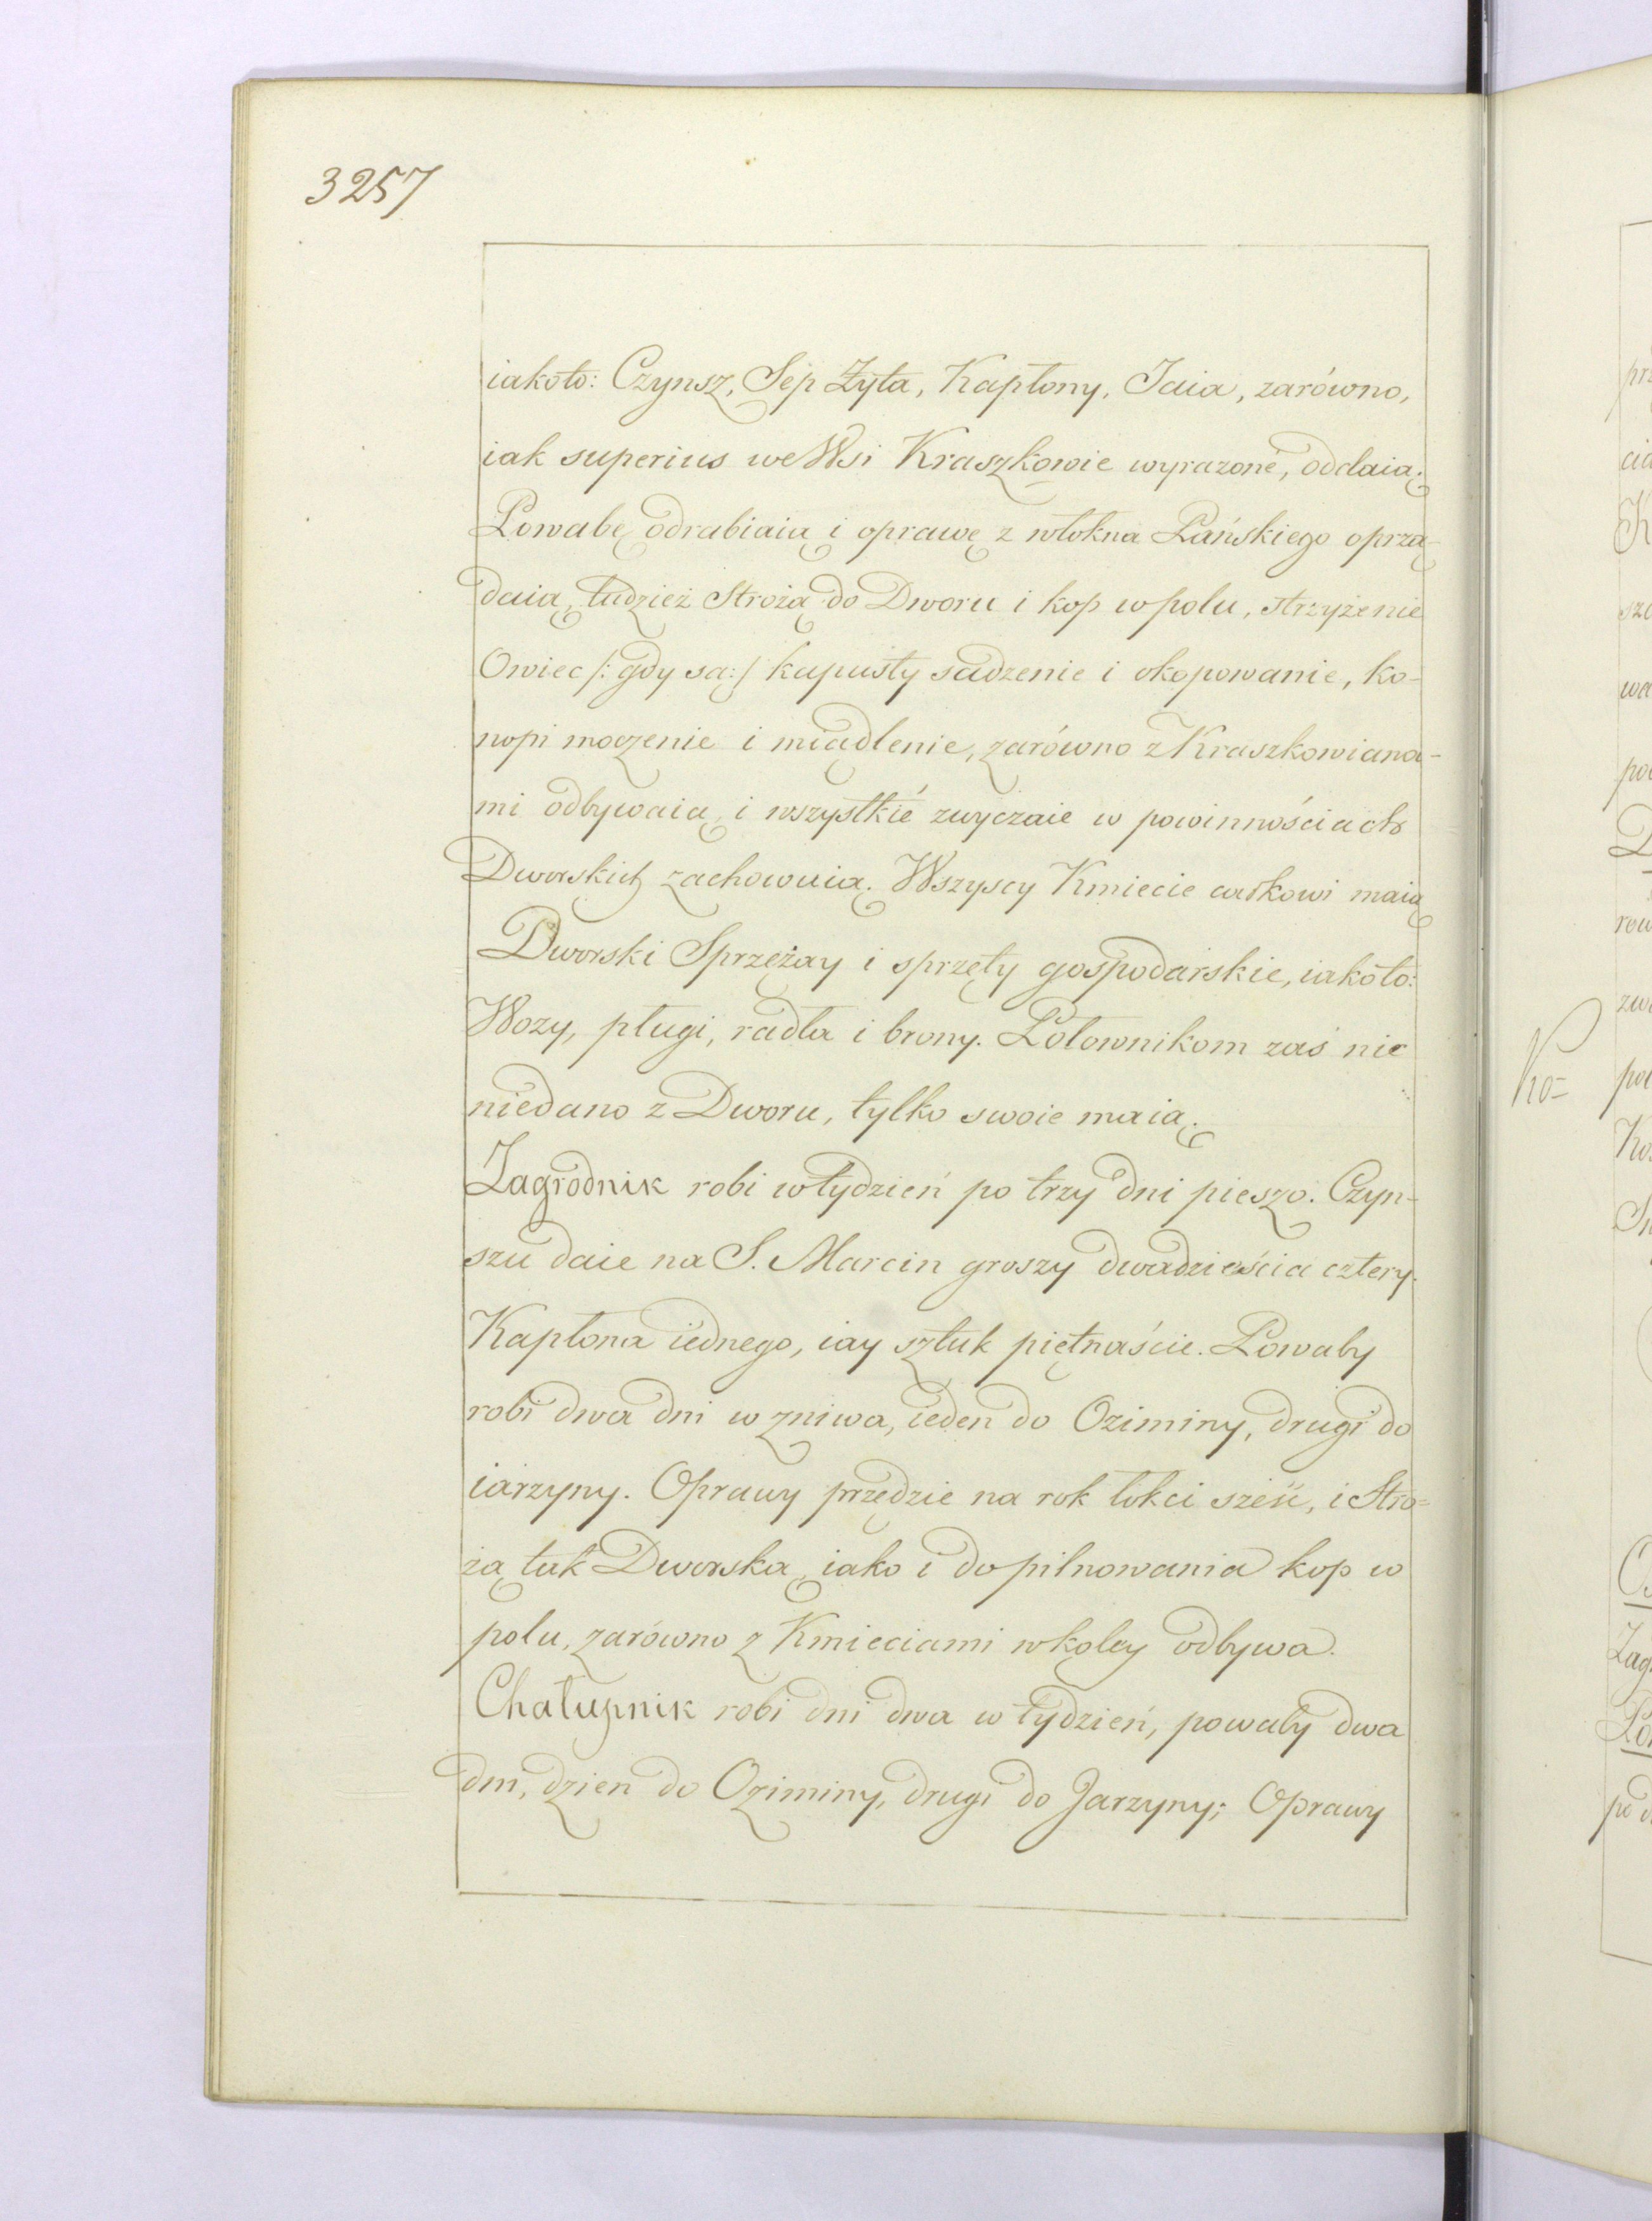 3257
iakoto: Czynsz, Sep Żyta, Kapłony, Iaia, zarówno,
iak superius we Wsi Kraszkowie wyrazoné, oddaią.
Powabę odrabiaią i oprawę z włokna Pańskiego oprzą-
daią, tudzież Strożą do Dworu i kop w polu, strzyżenie
Owiec /: gdy są :/ kapusty sadzenie i okopowanie, ko-
nopi moczenie i miądlenie, zarówno z Kraszkowiana-
mi odbywaią, i wszystkié zwyczaie w powinnościach
Dworskich zachowuią. Wszyscy Kmiecie całkowi maią
Dworski Sprzężay i sprzęty gospodarskie, iakoto:
Wozy, pługi, radła i brony. Połownikom zaś nic
niedano z Dworu, tylko swoie maią.
Zagrodnik robi w tydzień po trzy dni pieszo. Czyn-
szu daie na S. Marcin groszy dwadzieścia cztery.
Kapłona iednego, iay sztuk piętnaście. Powaby
robi dwa dni w zniwa, ieden do Oziminy, drugi do
iarzyny. Oprawy przędzie na rok łokci sześć, i Stro=
żą tak Dworską, iako i do pilnowania kop w
polu, zarówno z Kmieciami w koley odbywa.
Chałupnik robi dni dwa w tydzień, powaby dwa
dni, dzien do Oziminy, drugi do Jarzyny; Oprawy
Ko=